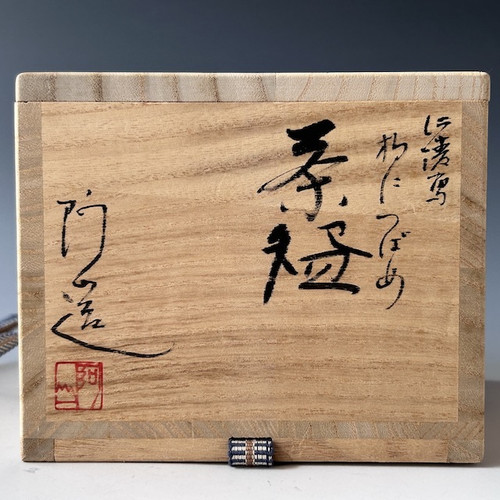 仁清写
柳につばめ
茶碗
阿山造
阿山